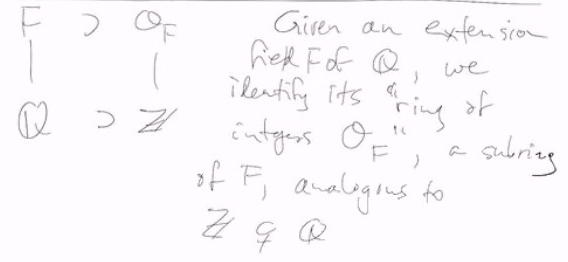 F ⊃ O_F
| |
ℚ ⊃ ℤ
Given an extension
field F of ℚ, we
identify its "ring of
integers O_F", a subring
of F, analogous to
ℤ ⊊ ℚ